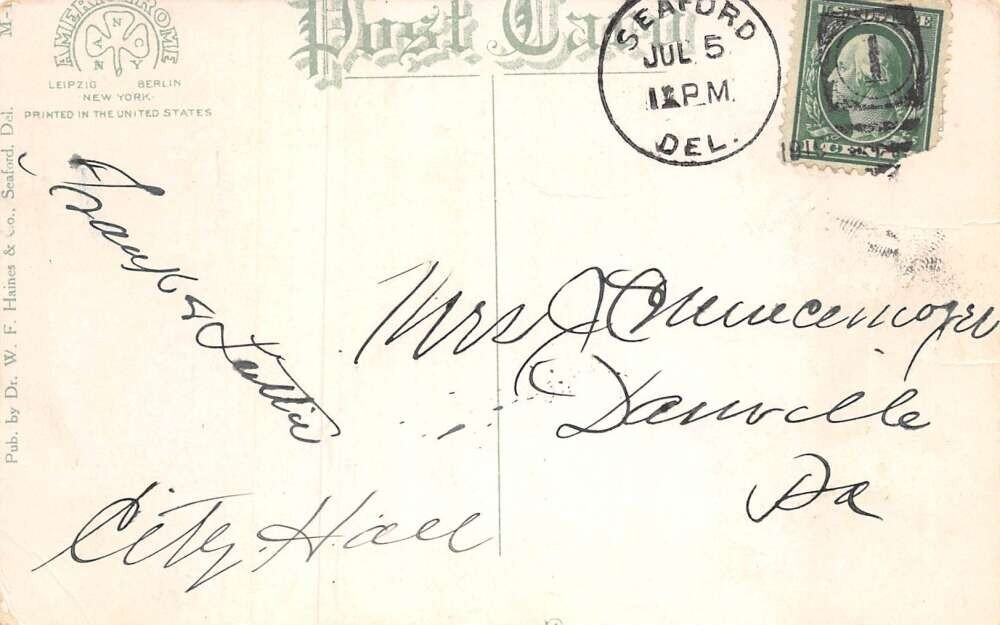 AMERICHROME
A N C N Y
LEIPZIG BERLIN
NEW YORK
PRINTED IN THE UNITED STATES
Post Card
SEAFORD
JUL 5
12 PM
DEL.
1
Pub. by Dr. W. F. Haines & Co., Seaford, Del. M-
Frank & Lettie
Mrs J C
Danville
Pa
City Hall